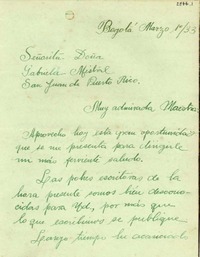 2944.1
Bogotá Marzo 1º/33
Señorita Doña
Gabriela Mistral
San Juan de Puerto Rico.
Muy admirada Maestra:
Aprovecho hoy esta gran oportunidad
que se me presenta para dirigirle
mi más ferviente saludo.
Las pobres escritoras de la
hora presente somos bien descono-
cidas para Ud, por más que
lo que escribimos se publique.
tiempo he